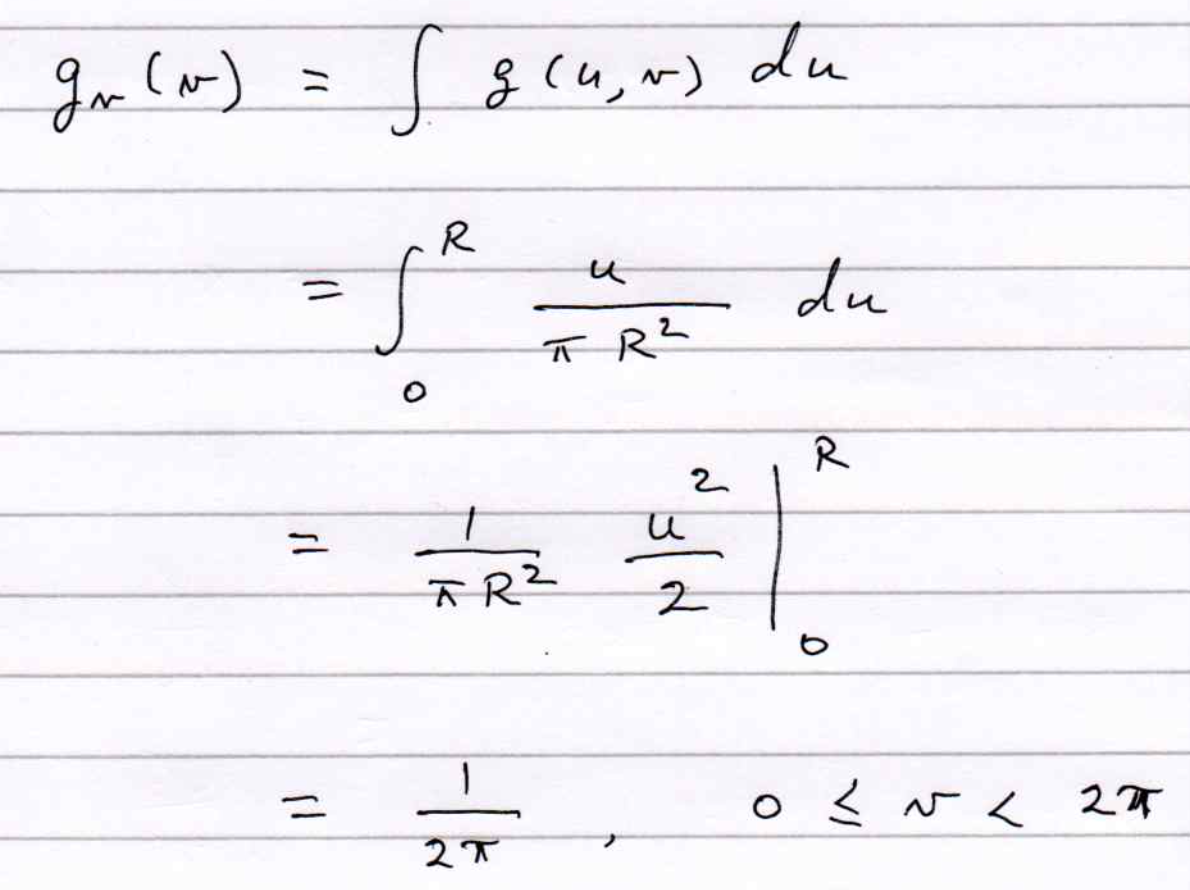 g_v (v) = ∫ g (u, v) du
= ∫_0^R u / (π R^2) du
= 1 / (π R^2) u^2 / 2 |_0^R
= 1 / (2π) , 0 ≤ v < 2π